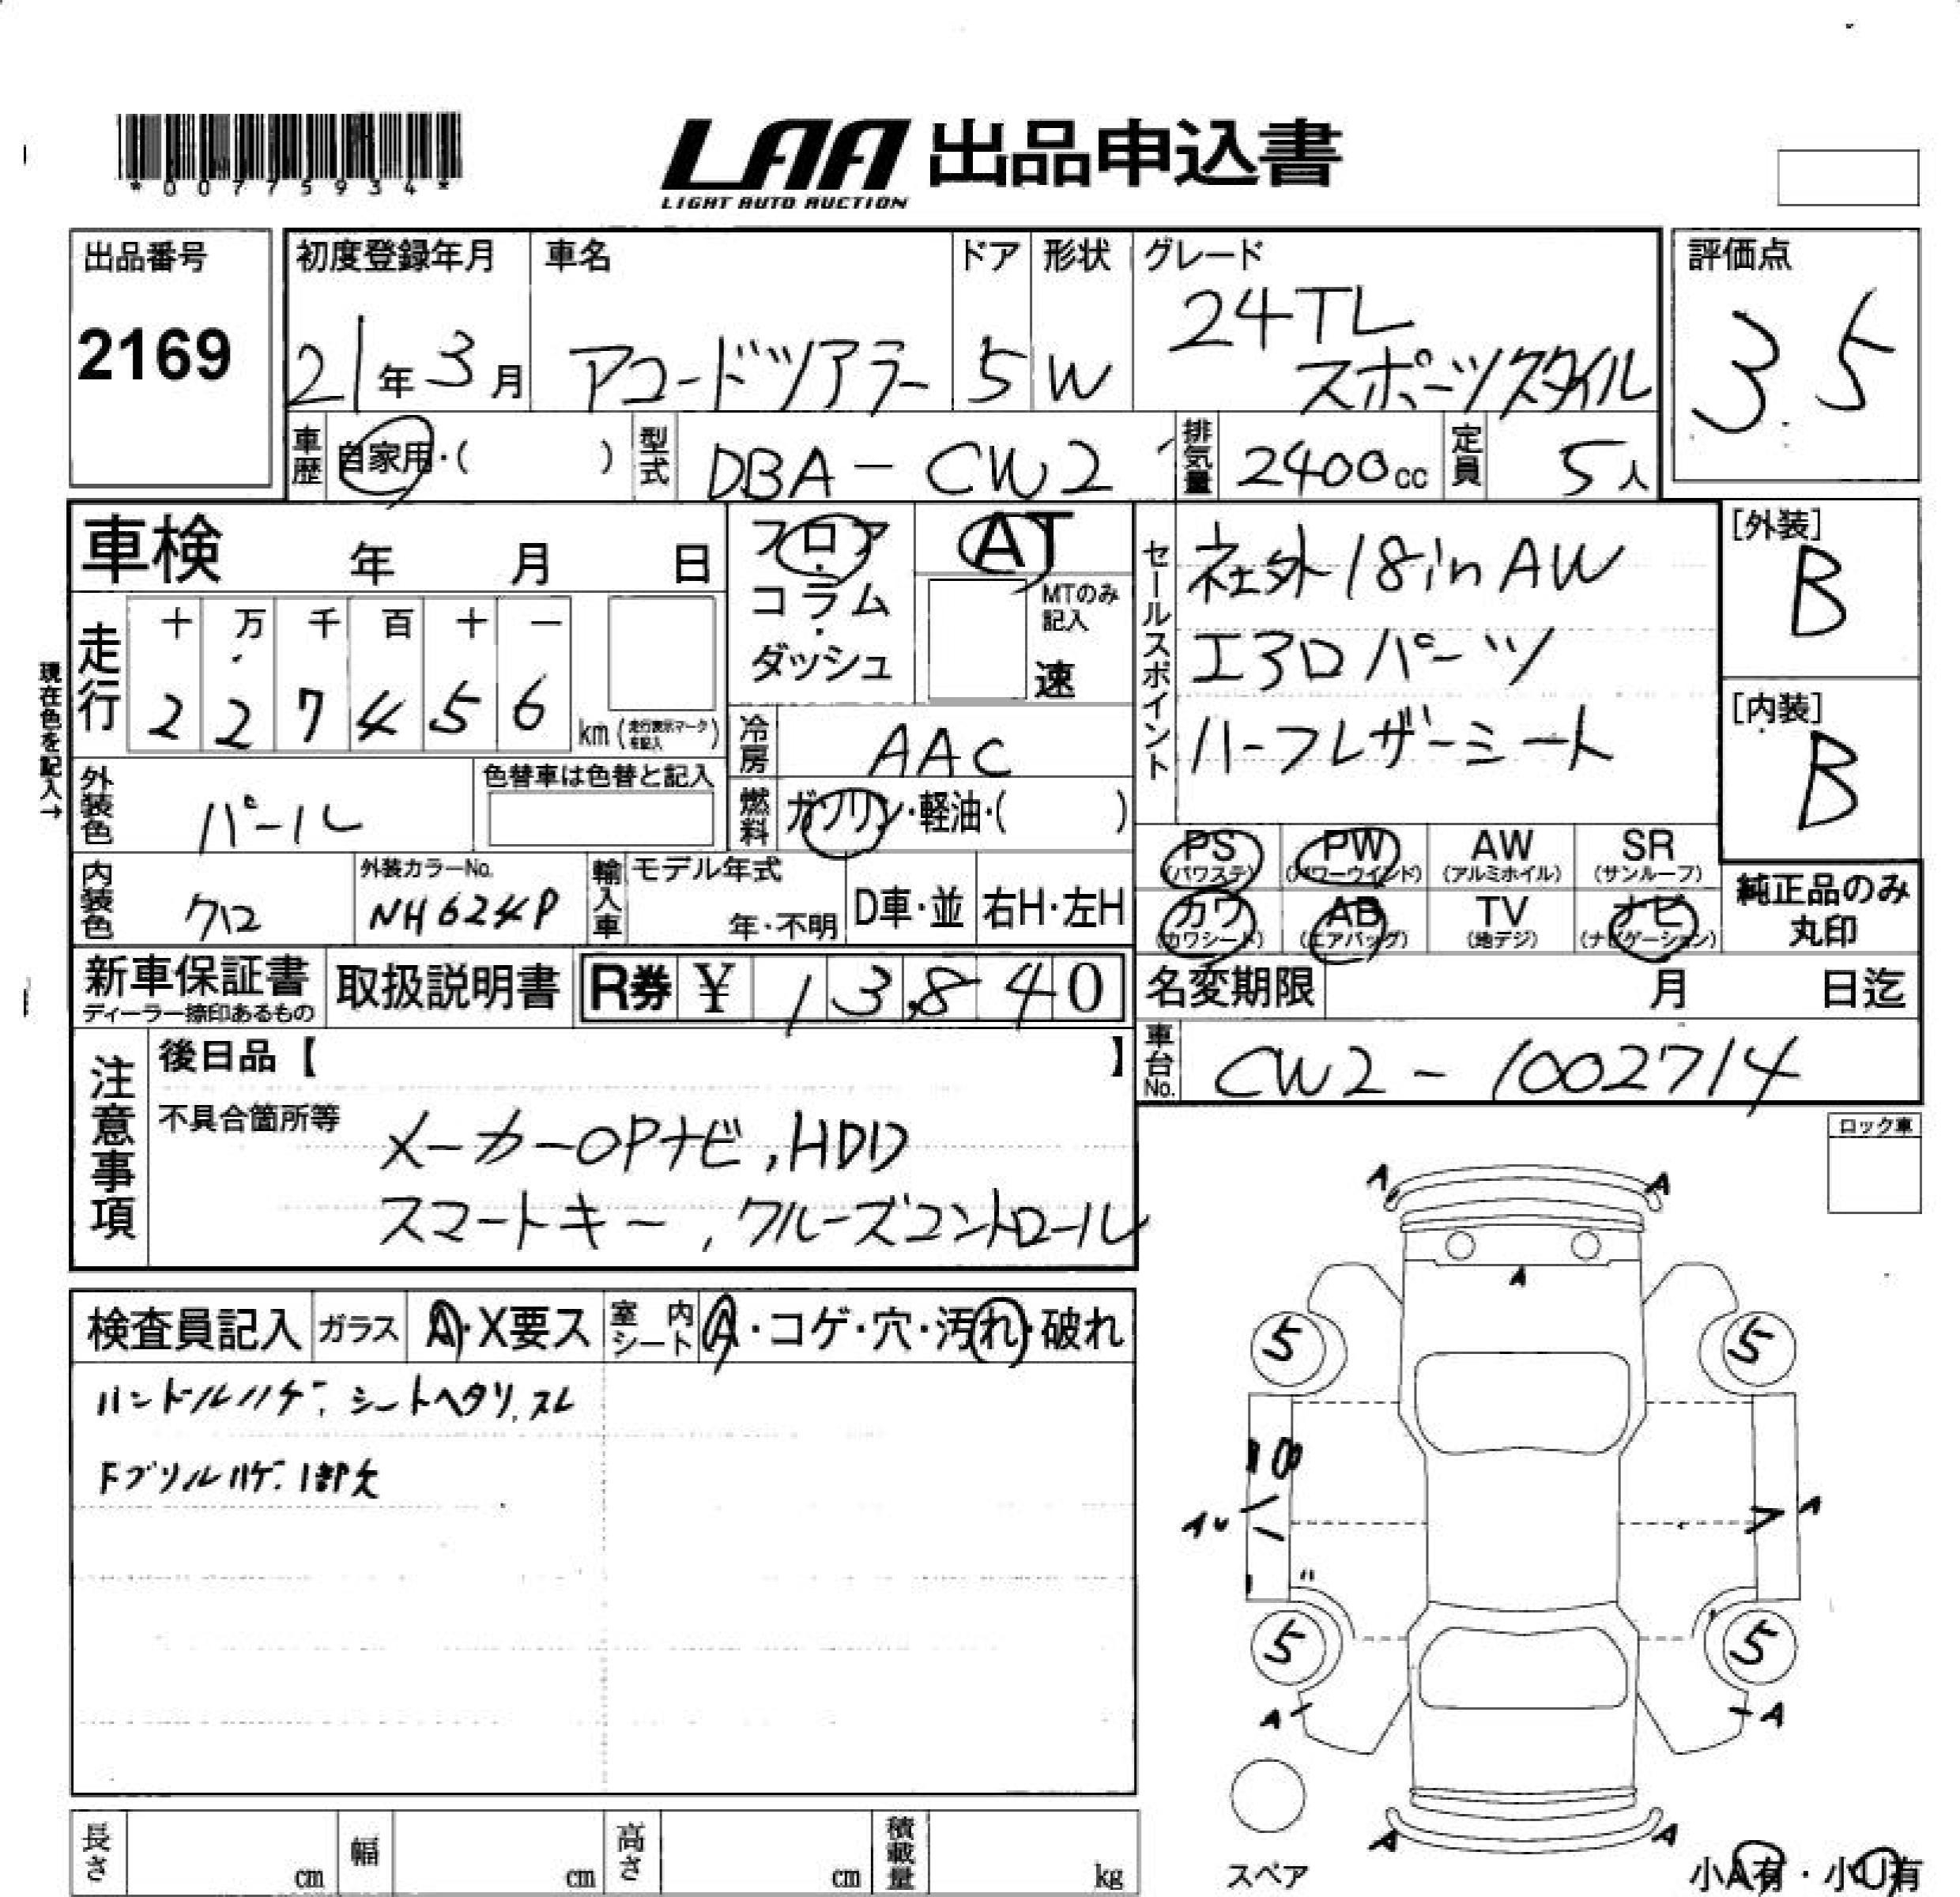 *00775934*
LAA 出品申込書
LIGHT AUTO AUCTION
出品番号
2169
初度登録年月
21年3月
車名
アコードツアラー
ドア
5
形状
W
グレード
24TL
スポーツスタイル
評価点
3.5
車歴
自家用・( )
型式
DBA-CW2
排気量
2400cc
定員
5人
車検 年 月 日
フロア・コラム・ダッシュ
AT
MTのみ記入
速
セールスポイント
社外18inAW
エアロパーツ
ハーフレザーシート
[外装]
B
[内装]
B
現在色を記入→
走行
十 万 千 百 十 一
2 2 7 4 5 6
km (走行表示マークを記入)
冷房
AAC
外装色
パール
色替車は色替と記入
燃料
ガソリン・軽油・( )
PS
(パワステ)
PW
(パワーウインド)
AW
(アルミホイル)
SR
(サンルーフ)
カワ
(カワシート)
AB
(エアバッグ)
TV
(地デジ)
ナビ
(ナビゲーション)
純正品のみ
丸印
内装色
クロ
外装カラーNo.
NH624P
輸入車
モデル年式
年・不明
D車・並
右H・左H
新車保証書
ディーラー捺印あるもの
取扱説明書
R券 ¥ 13,840
名変期限 月 日迄
車台No.
CW2-1002714
注意事項
後日品【 】
不具合箇所等
メーカーOPナビ,HDD
スマートキー,クルーズコントロール
ロック車
検査員記入
ガラス
A・X要ス
室内シート
A・コゲ・穴・汚れ・破れ
ハンドルハゲ、シートヘタリ、スレ
Fグリルハゲ、1部欠
A A
A
5 5
AU A
5 5
A A
A A
スペア
小A有・小U有
長さ cm
幅 cm
高さ cm
積載量 kg